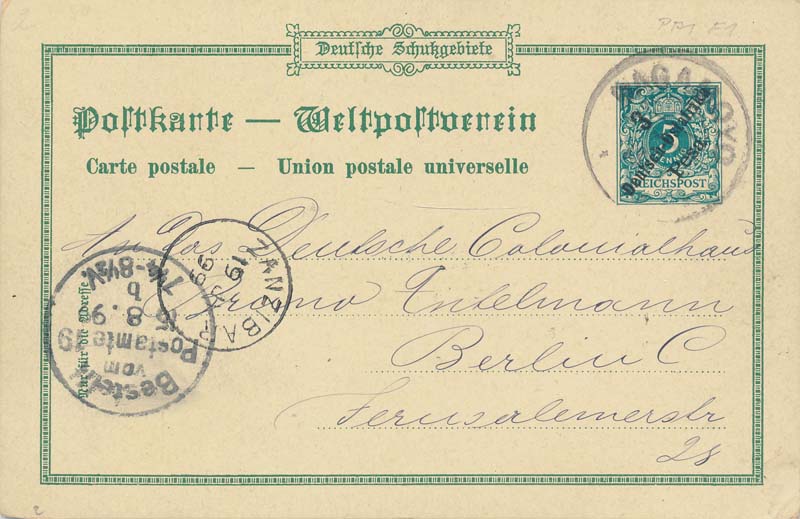 Deutsche Schutzgebiete
Postkarte — Weltpostverein
Carte postale — Union postale universelle
BAGAMOYO
5
PFENNIG
REICHSPOST
3
Pesa
An das Deutsche Colonialhaus
Bruno Antelmann
Berlin C
Jerusalemerstr
28
Nur für die Adresse
ZANZIBAR
16
99
Bestellt
vom
Postamte 19
8 9
7¼-8½V.
PP1 F1